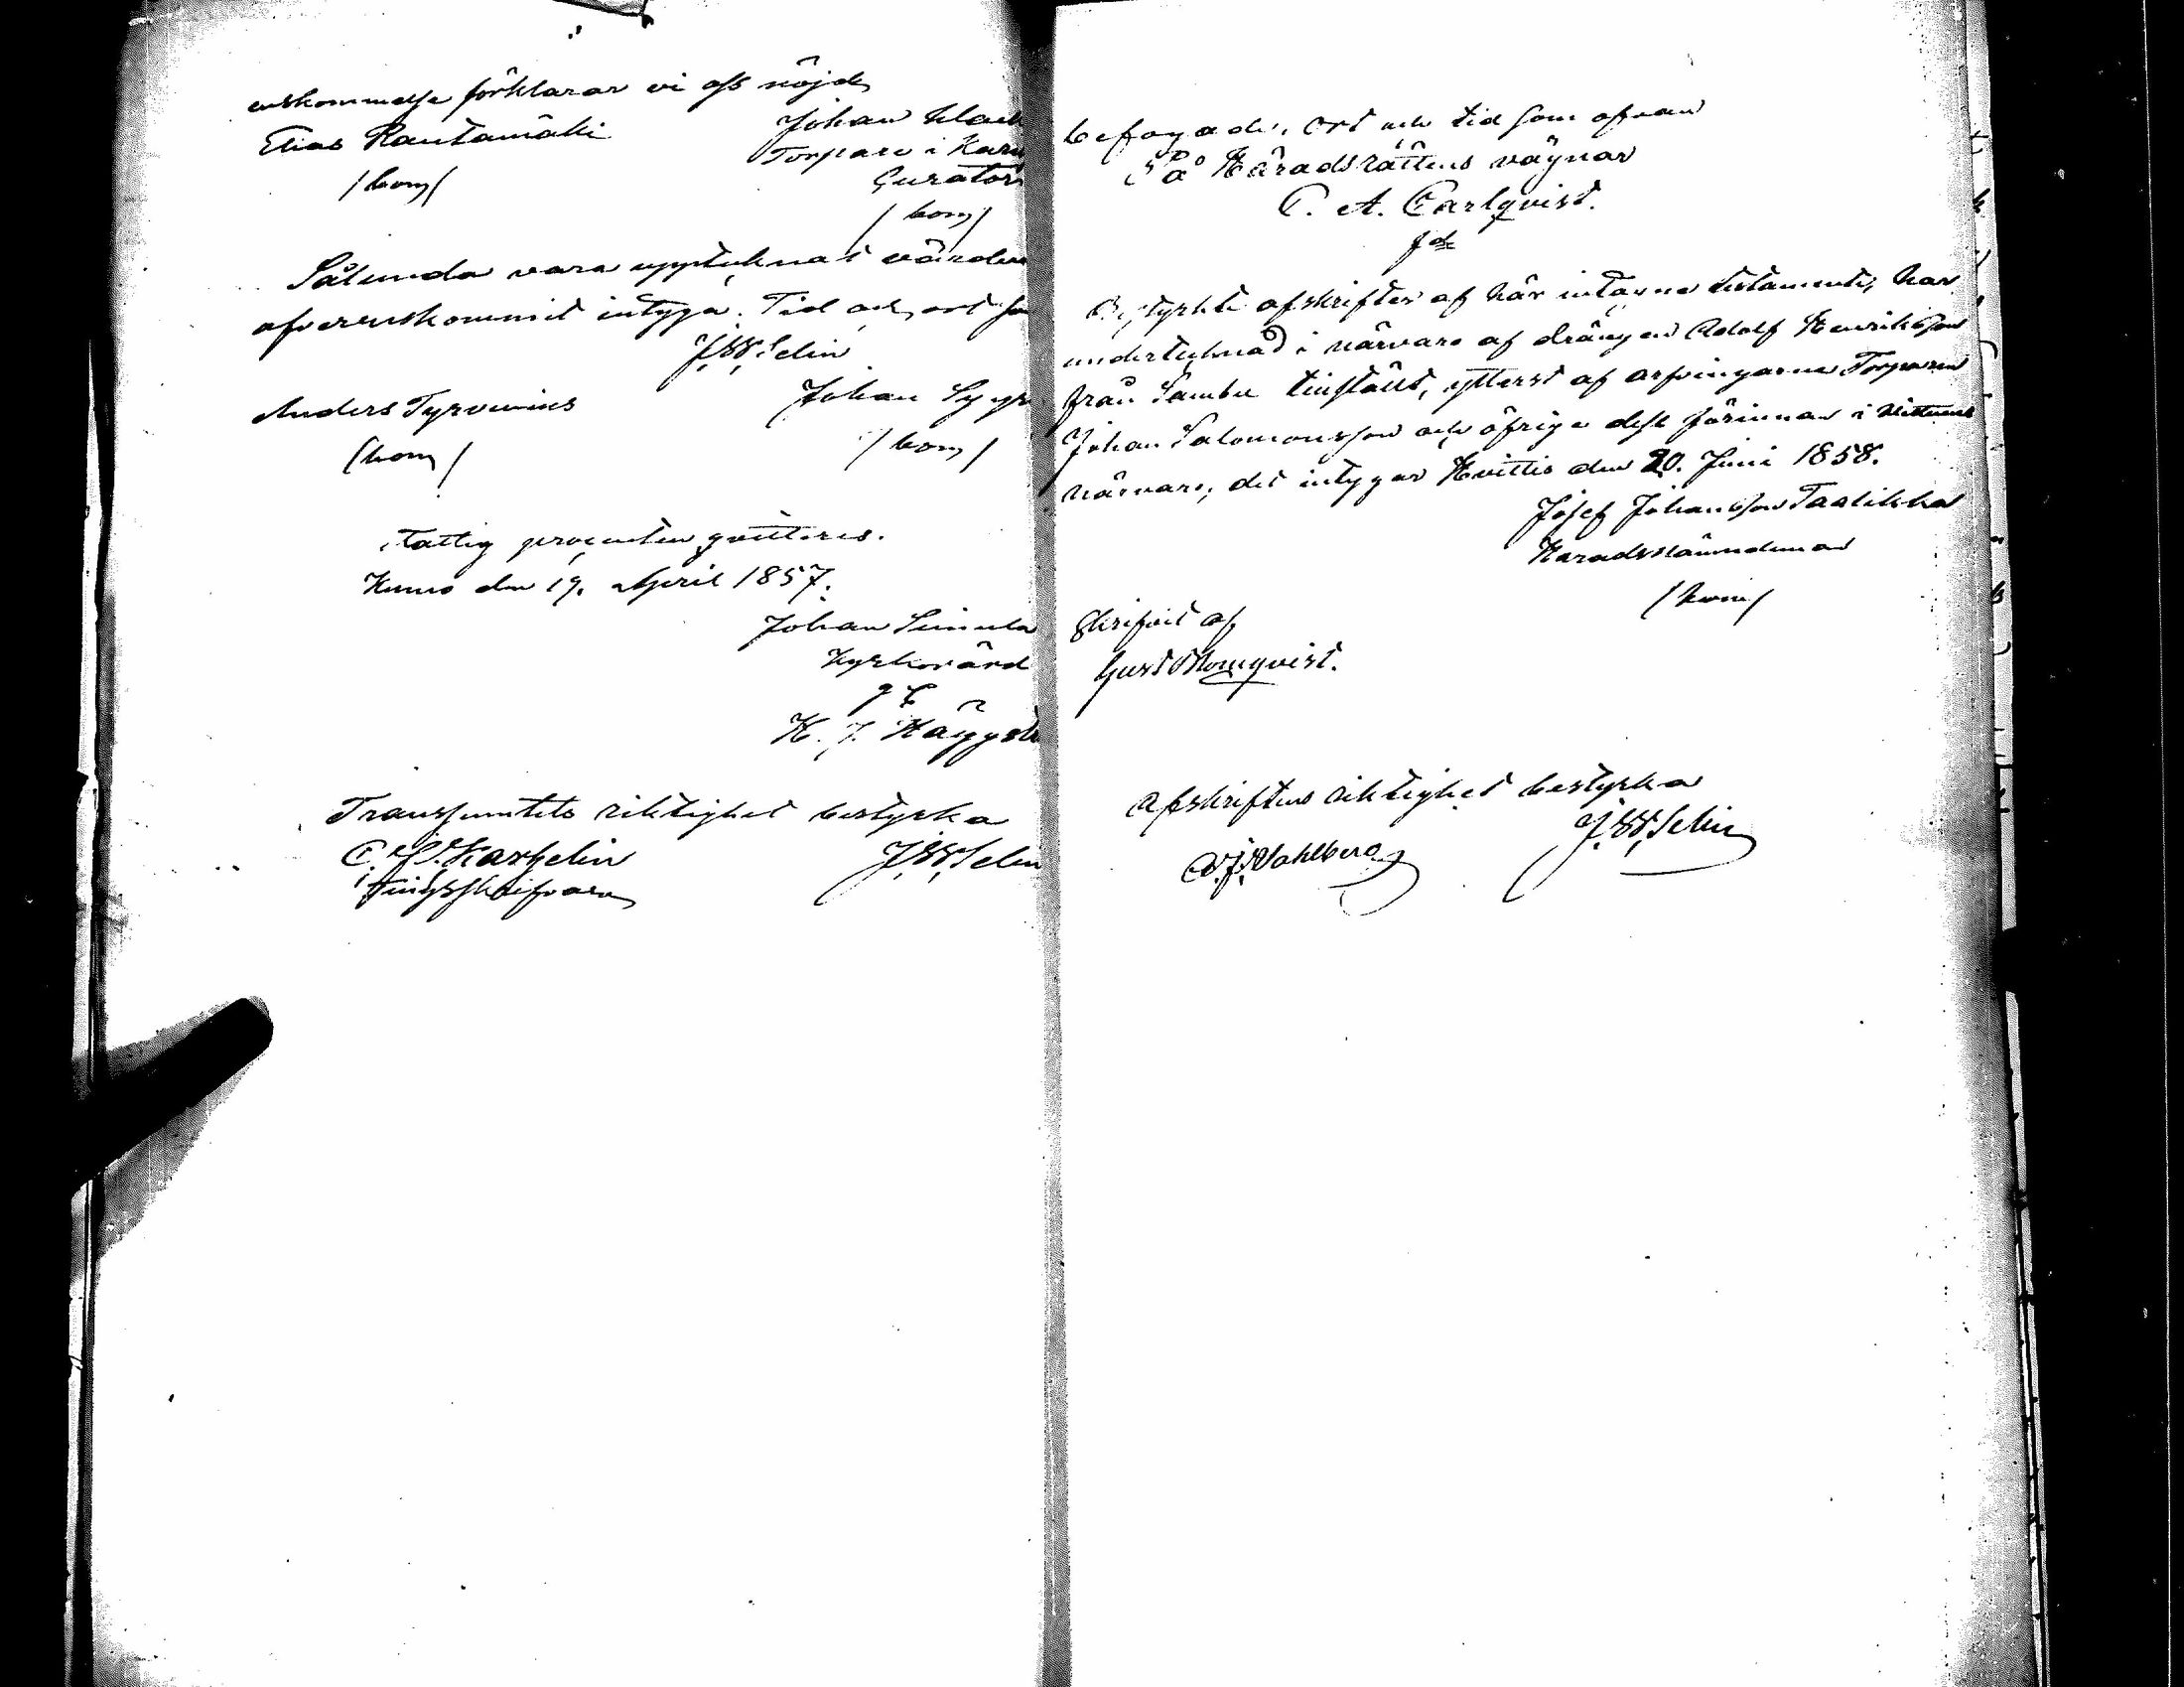 enskommelse förklarar vi oss nöjde
Elias Rautamäki
Johan
Torpare i
Curator
/bom/
/bom/
Sålunda vara upptecknat
öfverenskommit intyga. Tid och ort
J. W. Selin
Anders Tyrvenius
Johan
/bom/
/bom/
Fattig procenten qvitteras.
Kumo den 19. April 1857.
Johan Simula
Kyrkovärd
g C
K. J.
Transsumtets riktighet bestyrka
J. W. Selin
Tingsskrifvare
befogade, Ort och tid som ofvan
På Häradsrättens vägnar
C. A. Carlqvist.
Bestyrkte afskrifter af här intagne testamente, har
undertecknad i närvaro af drängen Adolf Henriksson
från Sambu tillstält, ytterst af arfvingarne Torparen
Johan Salomonsson och öfrige dess förinnan i vittnens
närvaro; det intygar Hvittis den 20. Juni 1858.
Josef Johansson Taalikka
Häradsnämndeman
/bom/
Skrifvit af
Gust Blomqvist.
Afskriftens riktighet bestyrka
J. W. Selin
Wahlberg